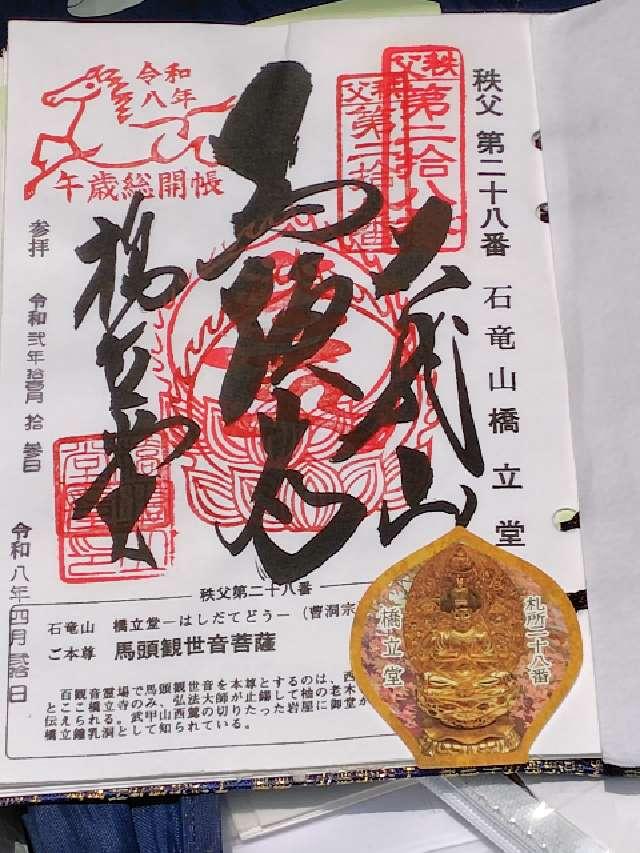 秩父 第二十八番 石竜山橋立堂
秩父
第二拾八番
秩父
石龍山
馬頭尊
橋立堂
令和
八年
午歳総開帳
参拝 令和弐年拾壱月 拾 参日
令和八年四月弐拾日
秩父第二十八番
石竜山 橋立堂ーはしだてどうー(曹洞宗
ご本尊 馬頭観世音菩薩
百観音霊場で馬頭観世音を本尊とするのは、西
とここ橋立寺のみ、弘法大師が止錫して柚の老木
伝えられる。武甲山西麓の切りたった岩屋に御堂が
橋立鍾乳洞として知られている。
札所二十八番
橋立堂